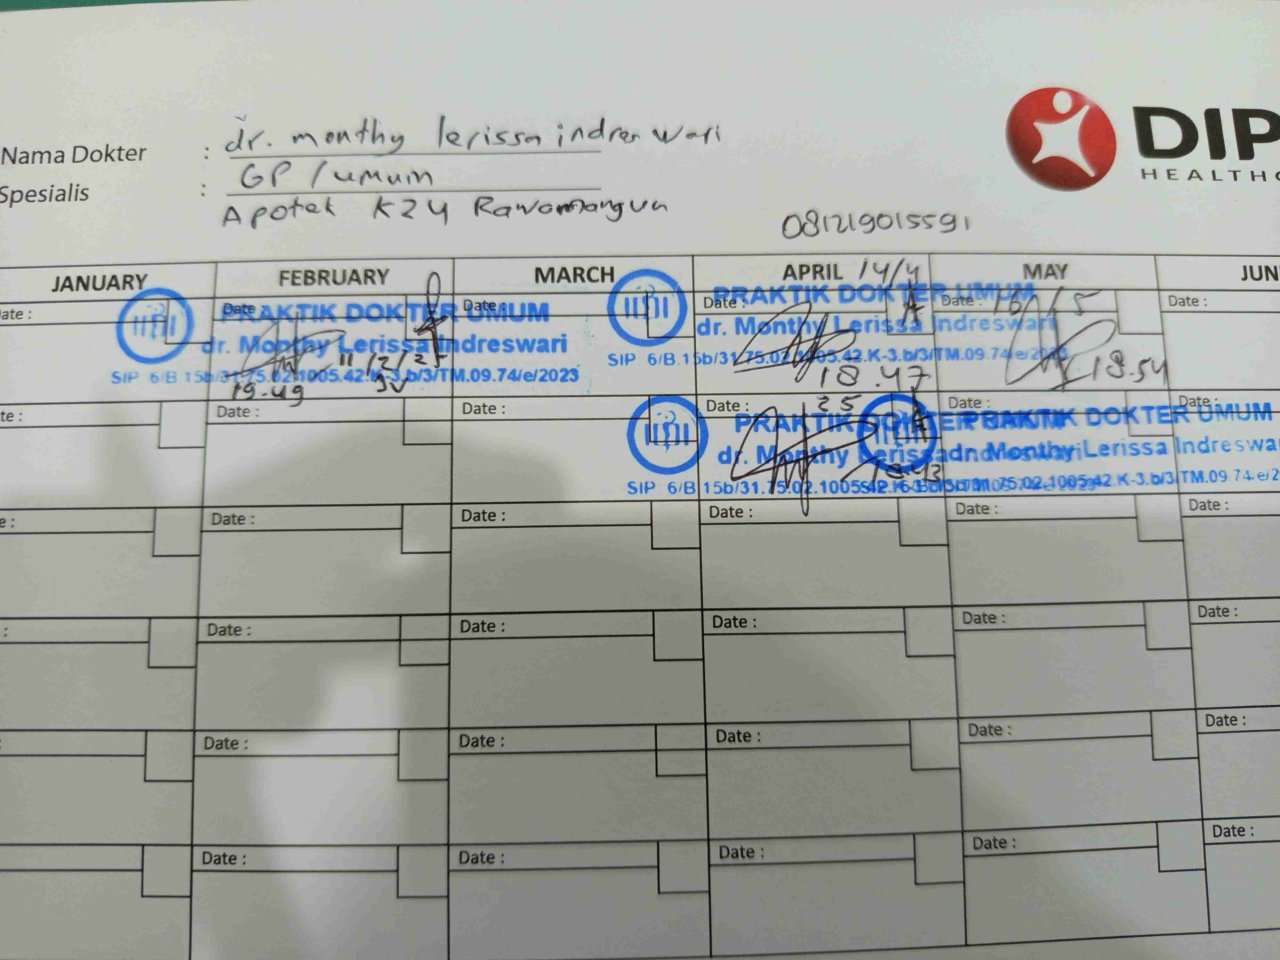 Nama Dokter : dr. monthy lerissa indreswari
Spesialis : GP / umum
Apotek K24 Rawamangun
081219015591
DIP
HEALTHC
JANUARY FEBRUARY MARCH APRIL 14/4 MAY JUN
ate : Date : Date : Date : Date : 16/5 Date :
PRAKTIK DOKTER UMUM
dr. Monthy Lerissa Indreswari
SIP 6/B 15b/31.75.02.1005.42.K-3.b/3/TM.09.74/e/2023
11/2/25
19.49
PRAKTIK DOKTER UMUM
dr. Monthy Lerissa Indreswari
SIP 6/B.15b/31.75.02.1005.42.K-3.b/3/TM.09.74/e/
18.47
18.54
te : Date : Date : Date : 25 Date : Date :
PRAKTIK DOKTER
dr. Monthy Lerissa
SIP 6/B 15b/31.75.02.1005.42
PRAKTIK DOKTER UMUM
dr. Monthy Lerissa Indreswa
75.02.1005.42.K-3.b/3/TM.09.74/e/2
e : Date : Date : Date : Date : Date :
: Date : Date : Date : Date : Date :
: Date : Date : Date : Date : Date :
Date : Date : Date : Date : Date :